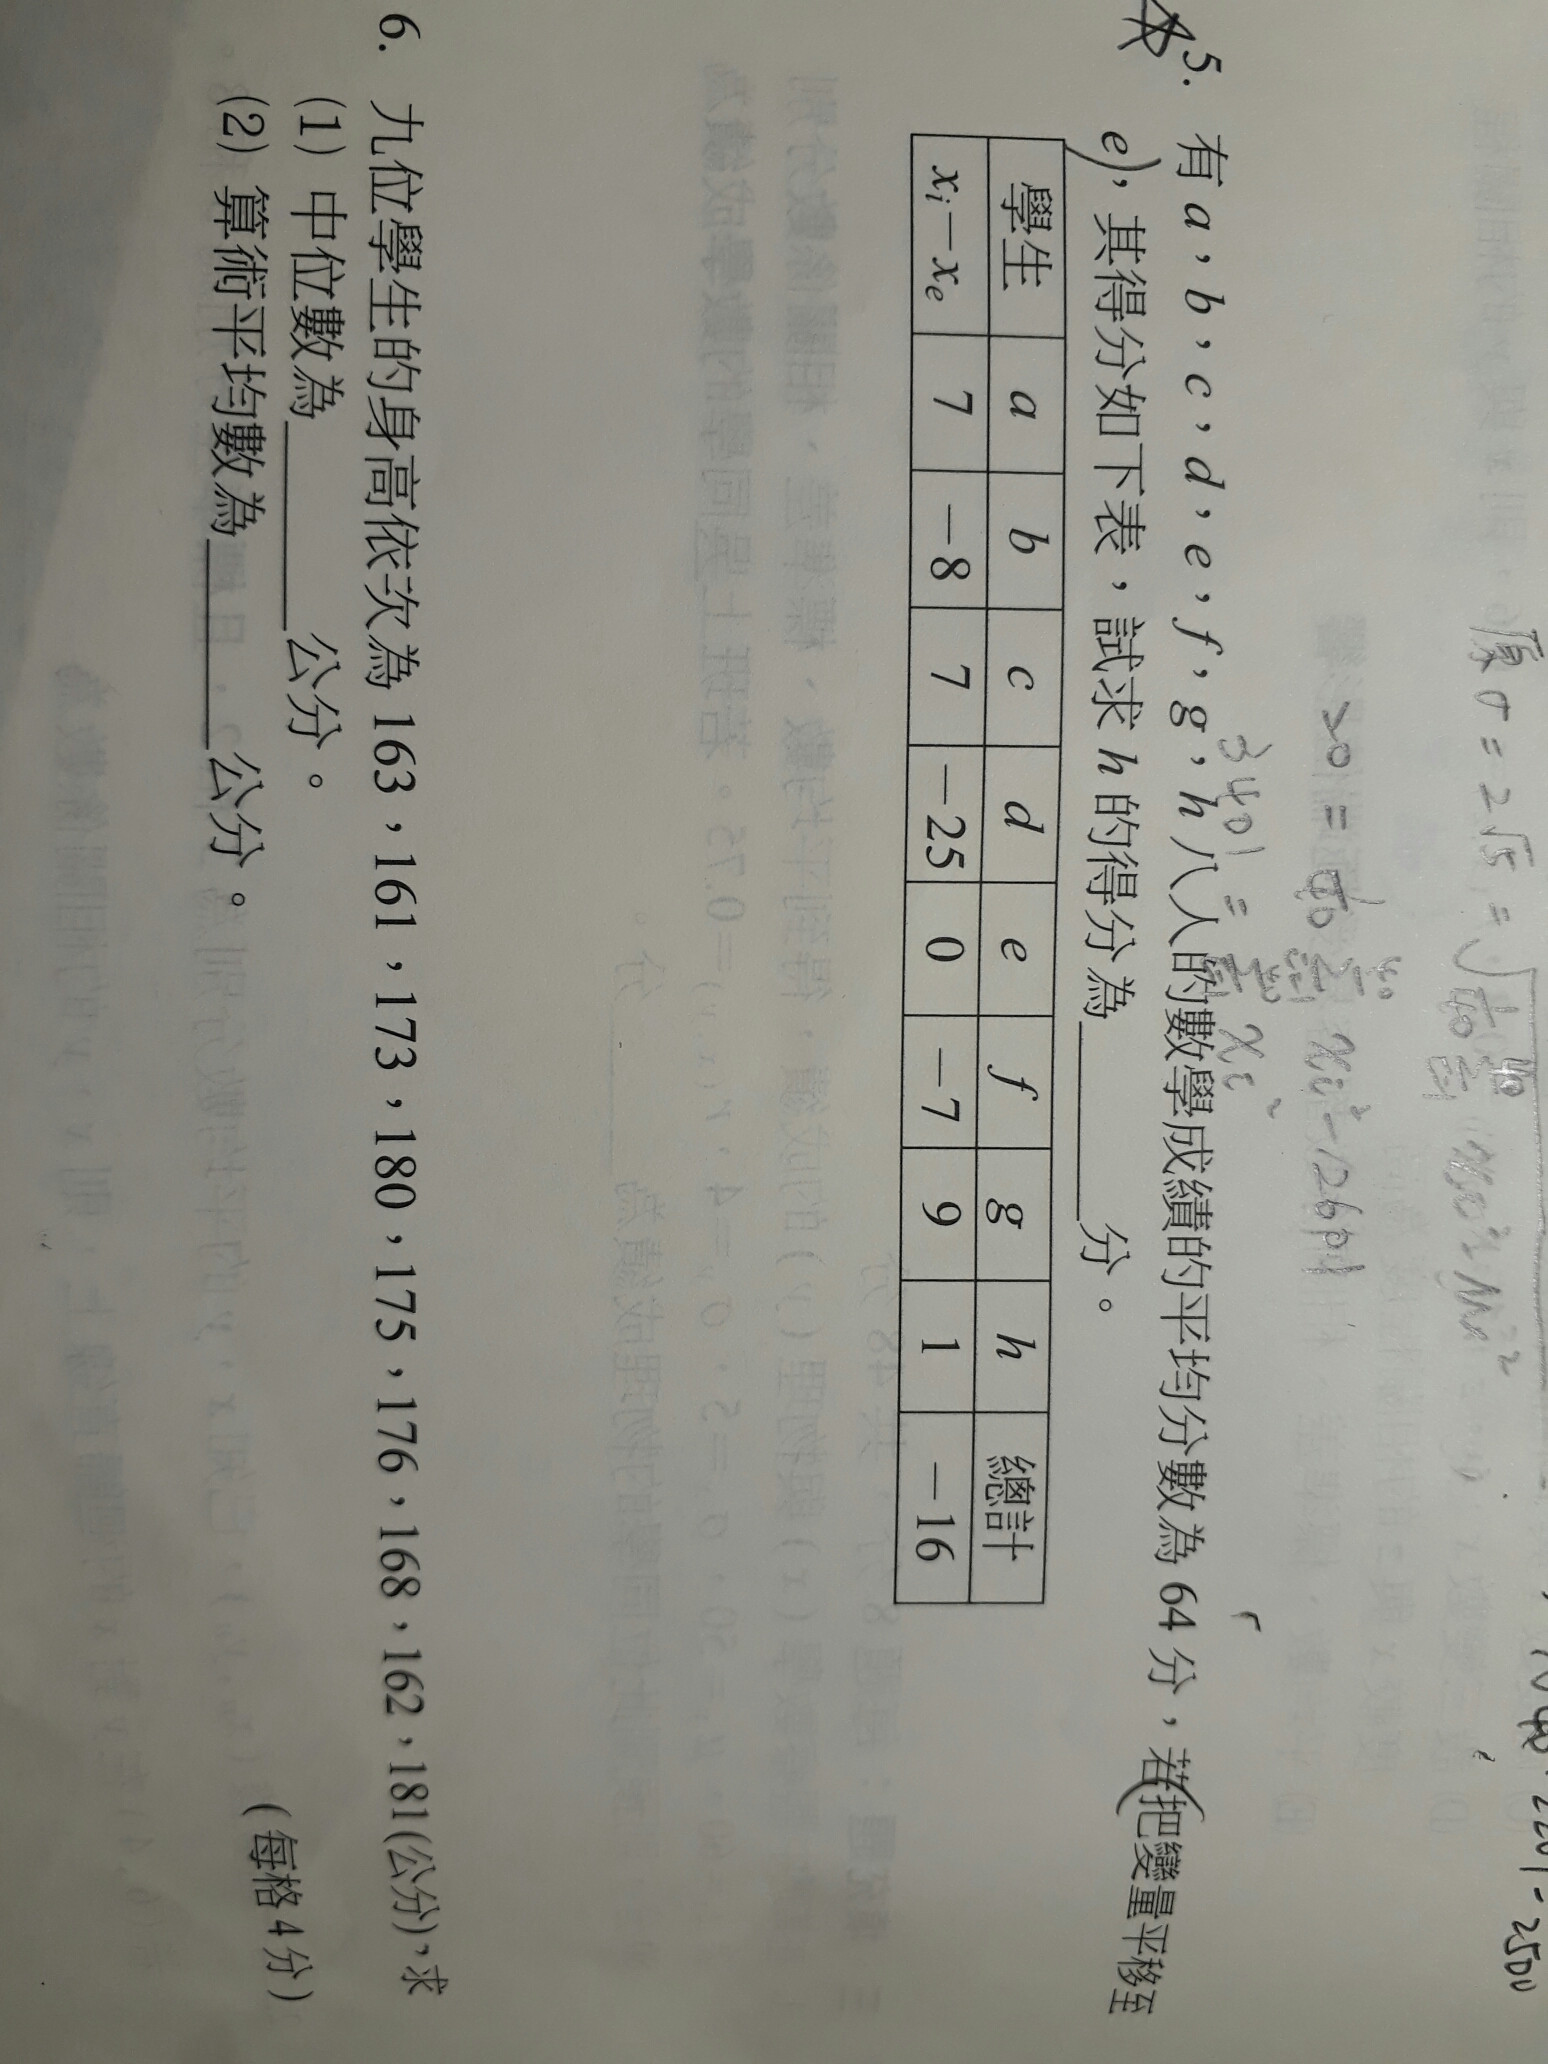 原σ=2√5=
5. 有 a,b,c,d,e,f,g,h 八人的數學成績的平均分數為 64 分,若把變量平移至
e,其得分如下表,試求 h 的得分為______分。
學生 a b c d e f g h 總計
xi-xe 7 -8 7 -25 0 -7 9 1 -16
6. 九位學生的身高依次為 163,161,173,180,175,176,168,162,181(公分),求
(1) 中位數為______公分。
(2) 算術平均數為______公分。 (每格4分)